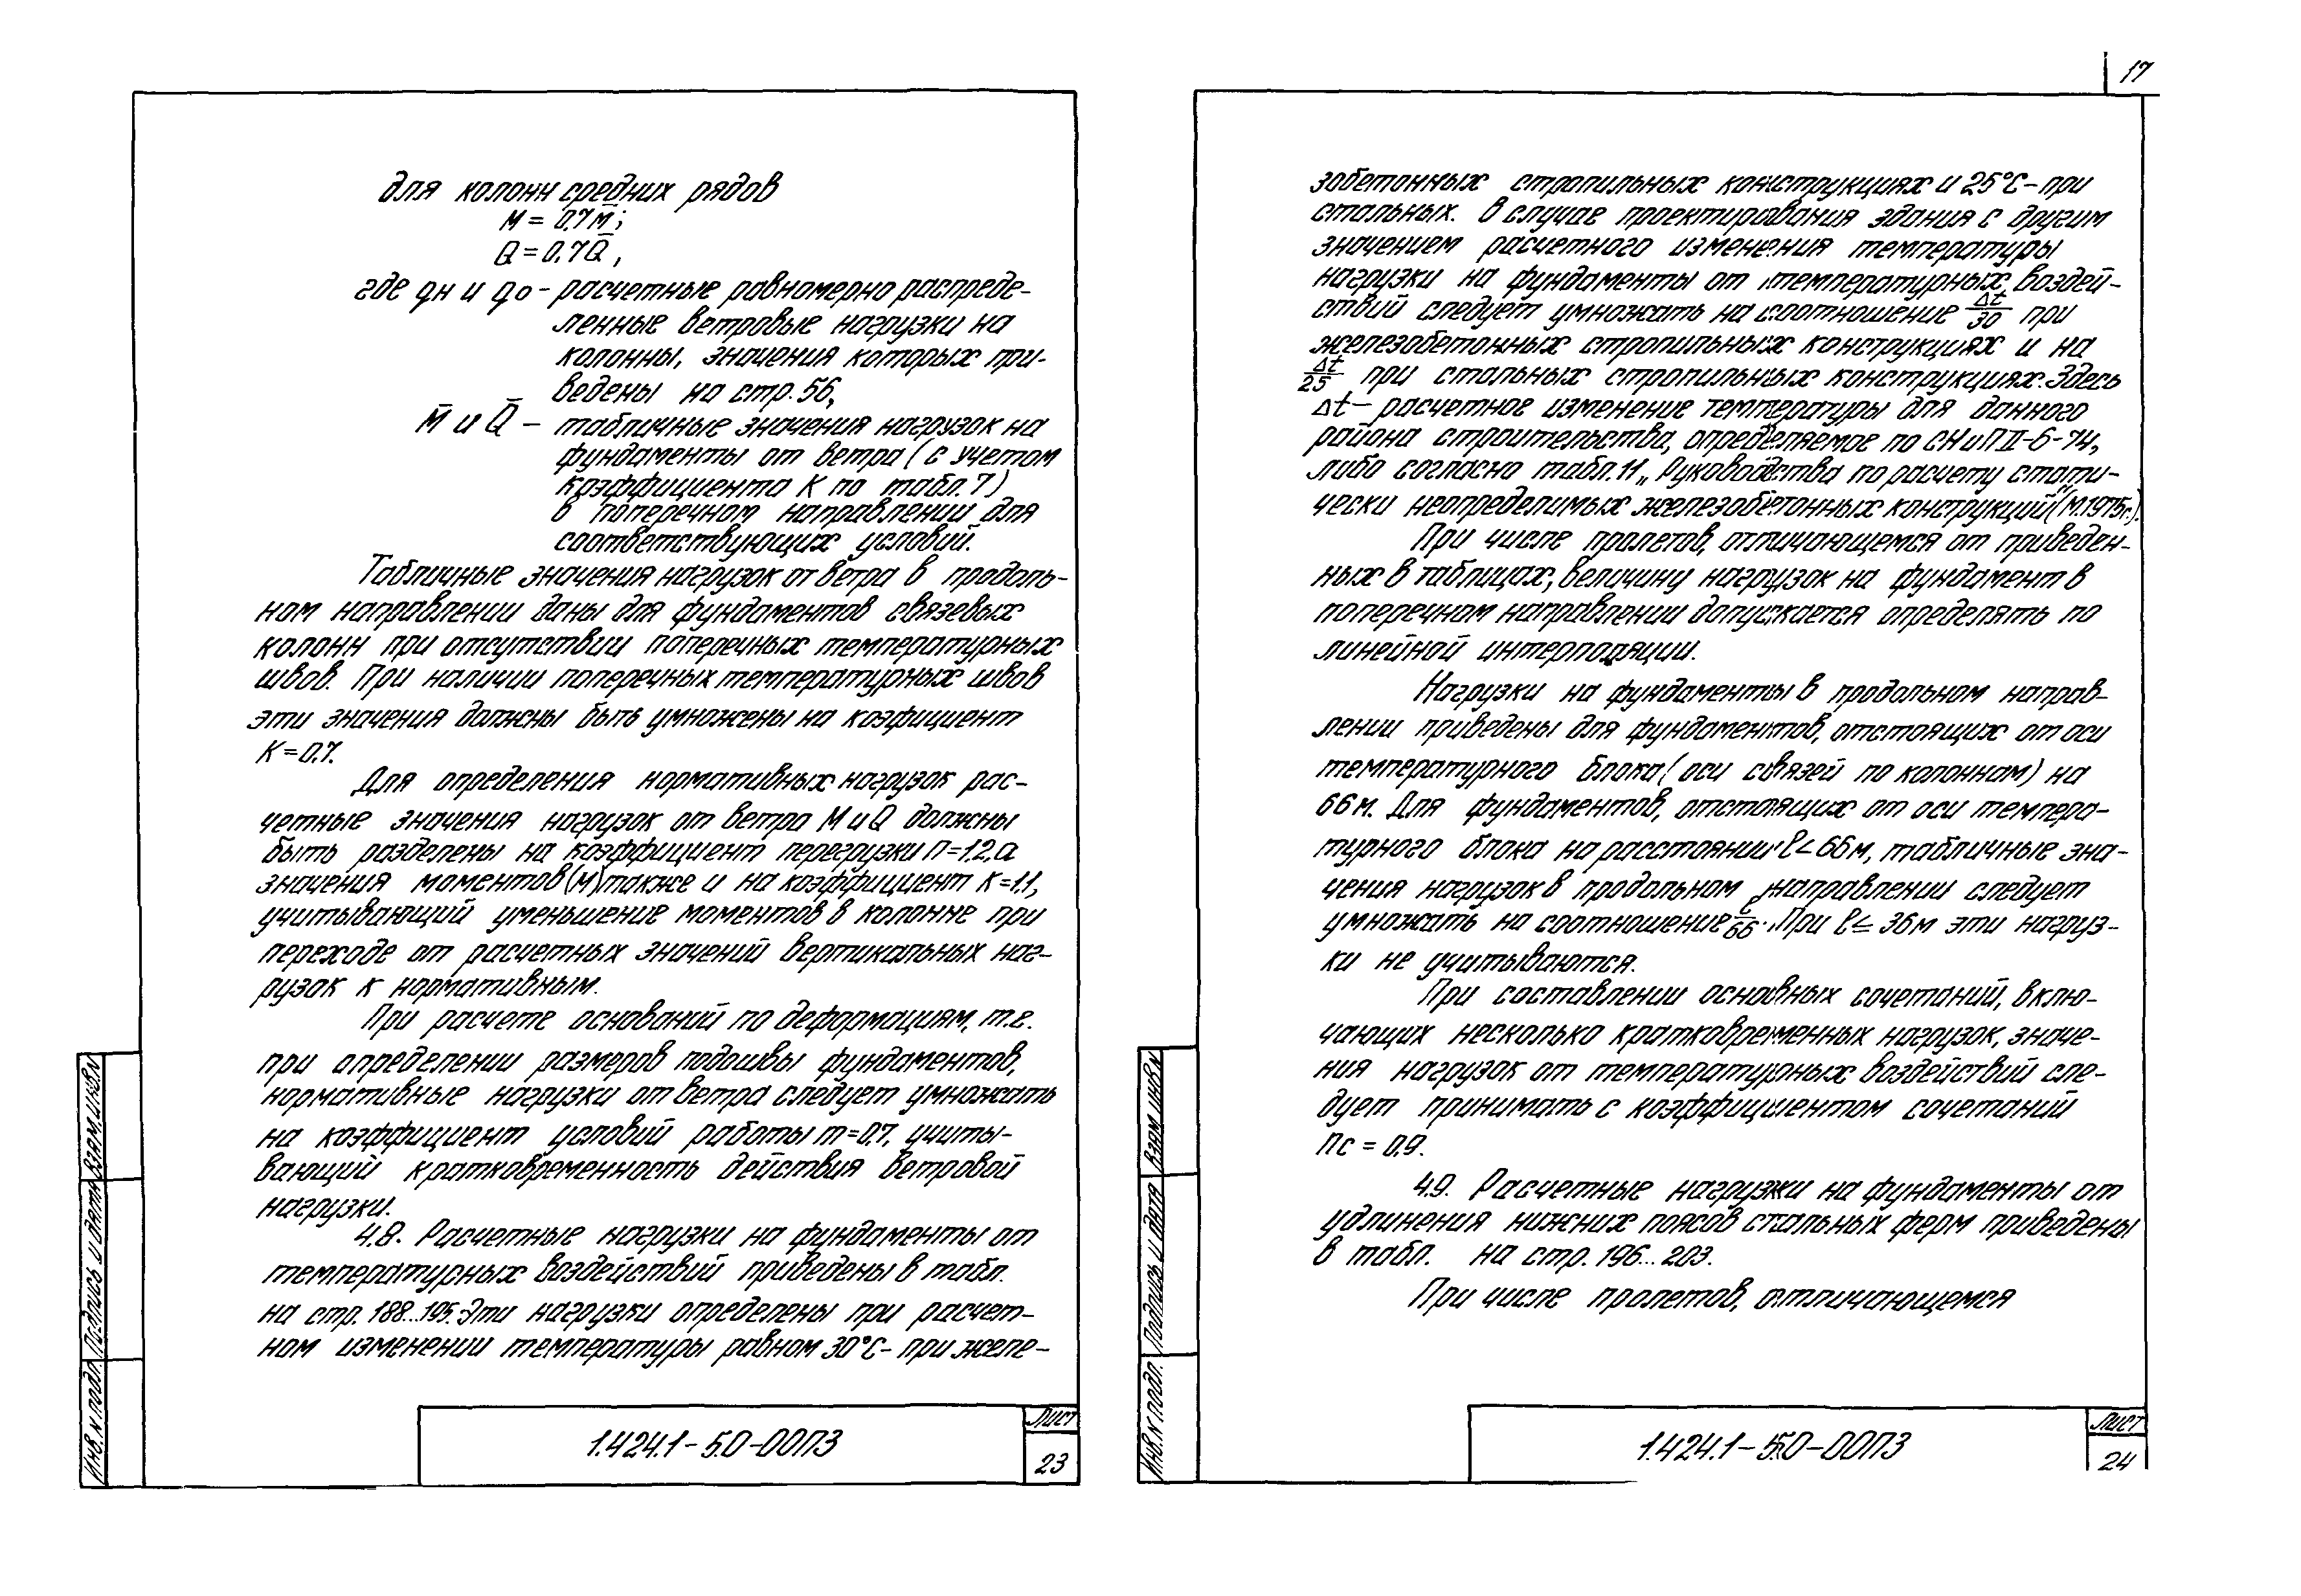 17
для колонн средних рядов
M = 0,7M̄;
Q = 0,7Q̄,
где qн и qо – расчетные равномерно распреде-
ленные ветровые нагрузки на
колонны, значения которых при-
ведены на стр. 56,
M̄ и Q̄ – табличные значения нагрузок на
фундаменты от ветра (с учетом
коэффициента К по табл. 7)
в поперечном направлении для
соответствующих условий.
Табличные значения нагрузок от ветра в продоль-
ном направлении даны для фундаментов связевых
колонн при отсутствии поперечных температурных
швов. При наличии поперечных температурных швов
эти значения должны быть умножены на коэфициент
К = 0,7.
Для определения нормативных нагрузок рас-
четные значения нагрузок от ветра M и Q должны
быть разделены на коэффициент перегрузки п=1,2, а
значения моментов (М) также и на коэффициент К=1,1,
учитывающий уменьшение моментов в колонне при
переходе от расчетных значений вертикальных наг-
рузок к нормативным.
При расчете оснований по деформациям, т.е.
при определении размеров подошвы фундаментов,
нормативные нагрузки от ветра следует умножать
на коэффициент условий работы m=0,7, учиты-
вающий кратковременность действия ветровой
нагрузки.
4.8. Расчетные нагрузки на фундаменты от
температурных воздействий приведены в табл.
на стр. 188...195. Эти нагрузки определены при расчет-
ном изменении температуры равном 30°С – при желе-
Инв. N подл. Подпись и дата Взам. инв. N
1.424.1-5.0-00ПЗ
Лист
23
зобетонных стропильных конструкциях и 25°С – при
стальных. В случае проектирования здания с другим
значением расчетного изменения температуры
нагрузки на фундаменты от температурных воздей-
ствий следует умножать на соотношение Δt/30 при
железобетонных стропильных конструкциях и на
Δt/25 при стальных стропильных конструкциях. Здесь
Δt – расчетное изменение температуры для данного
района строительства, определяемое по СНиП II-6-74,
либо согласно табл. 11 „Руководства по расчету стати-
чески неопределимых железобетонных конструкций" (М. 1975г.).
При числе пролетов, отличающемся от приведен-
ных в таблицах, величину нагрузок на фундамент в
поперечном направлении допускается определять по
линейной интерполяции.
Нагрузки на фундаменты в продольном направ-
лении приведены для фундаментов, отстоящих от оси
температурного блока (оси связей по колоннам) на
66 м. Для фундаментов, отстоящих от оси темпера-
турного блока на расстоянии ℓ < 66 м, табличные зна-
чения нагрузок в продольном направлении следует
умножать на соотношение ℓ/66. При ℓ ≤ 36 м эти нагруз-
ки не учитываются.
При составлении основных сочетаний, вклю-
чающих несколько кратковременных нагрузок, значе-
ния нагрузок от температурных воздействий сле-
дует принимать с коэффициентом сочетаний
Пс = 0,9.
4.9. Расчетные нагрузки на фундаменты от
удлинения нижних поясов стальных ферм приведены
в табл. на стр. 196...203.
При числе пролетов, отличающемся
Инв. N подл. Подпись и дата Взам. инв. N
1.424.1-5.0-00ПЗ
Лист
24